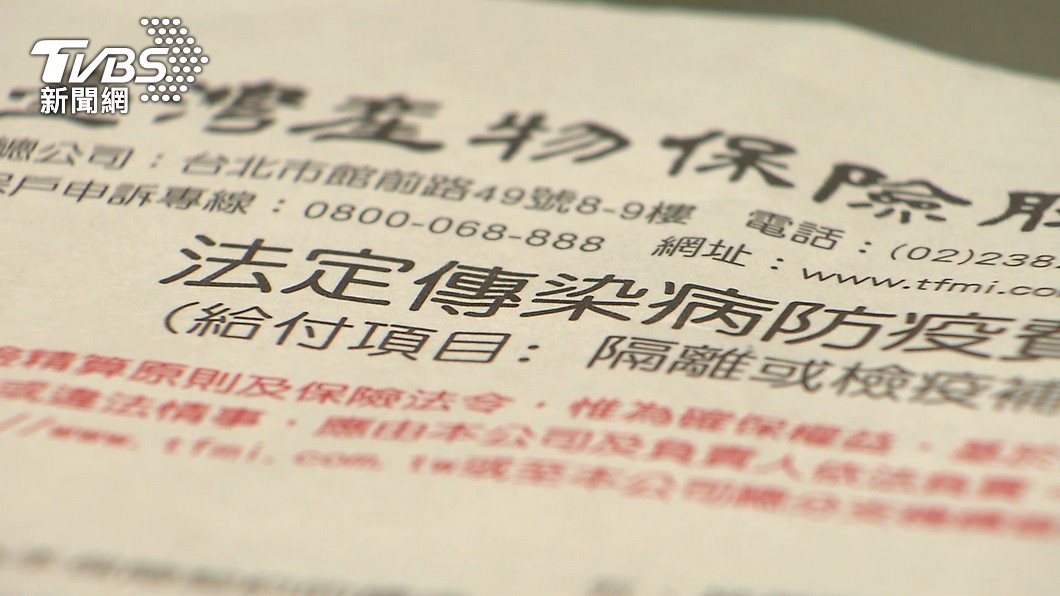 TVBS
新聞網
臺灣產物保險股
總公司：台北市館前路49號8-9樓　電話：(02)238
保戶申訴專線：0800-068-888　網址：www.tfmi.co
法定傳染病防疫費
(給付項目：隔離或檢疫補
精算原則及保險法令，惟為確保權益，基於
或違法情事，應由本公司及負責人依法負責
//www.tfmi.com.tw或至本公司